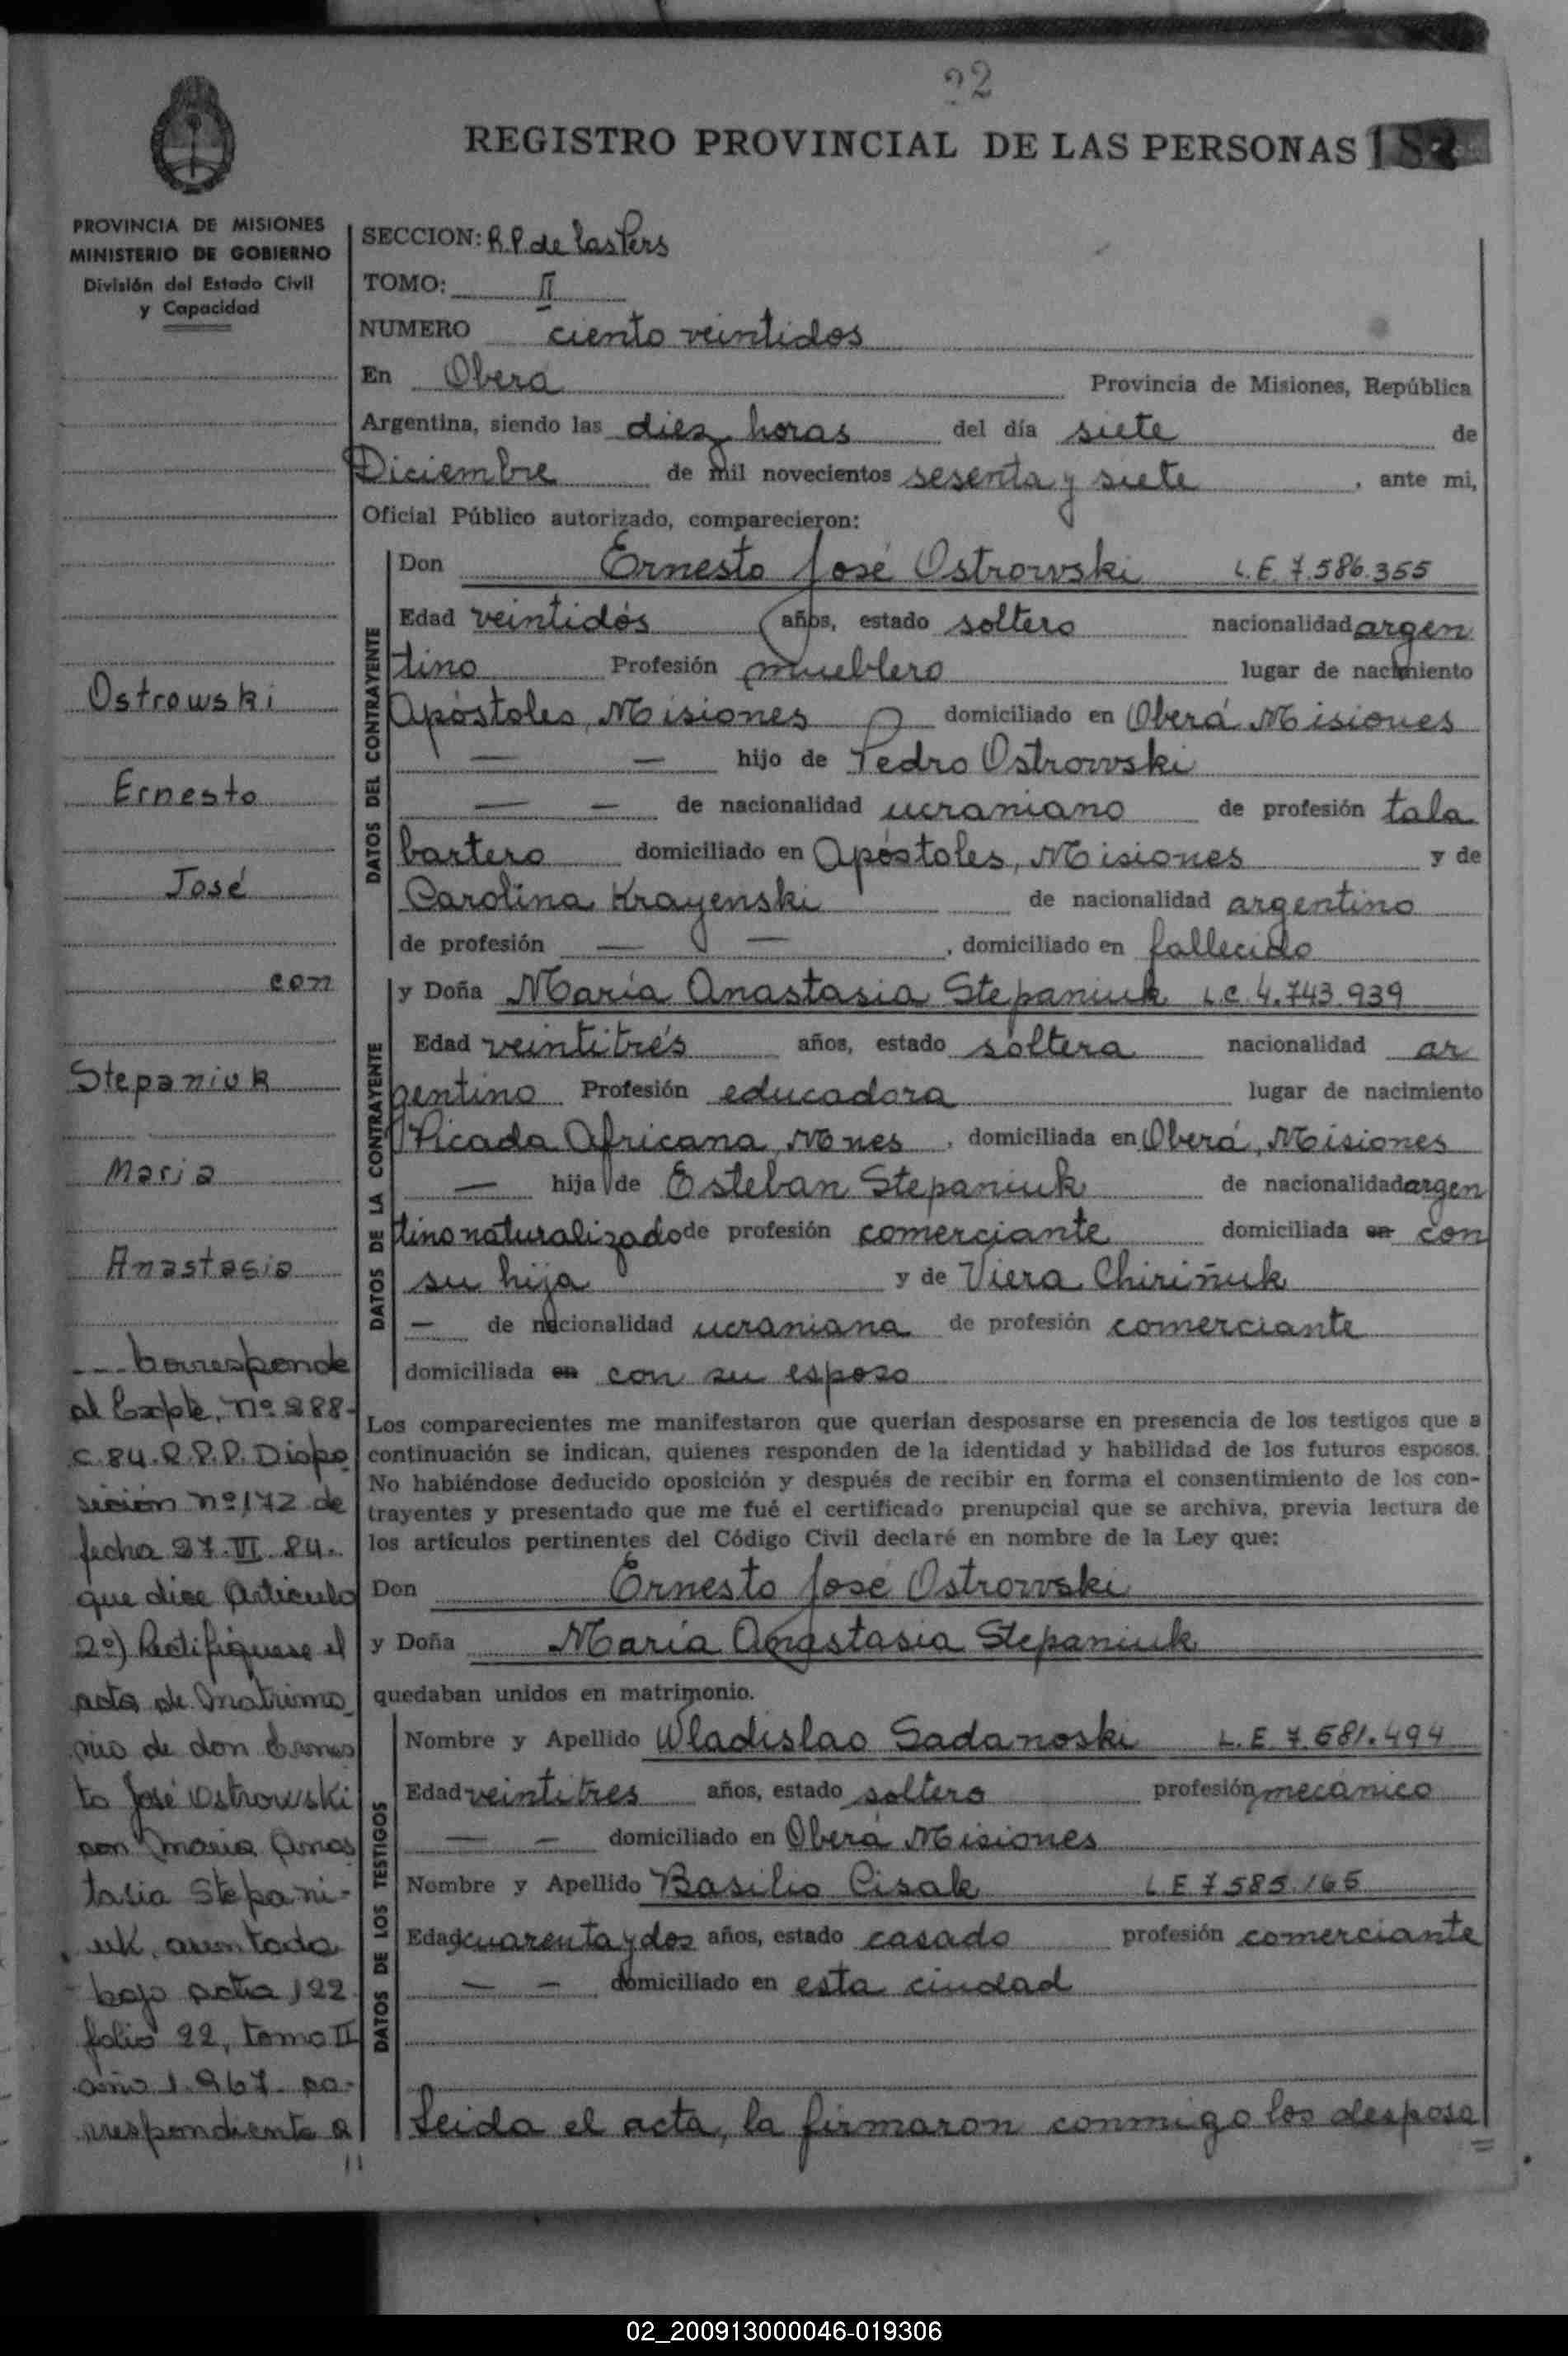 22
REGISTRO PROVINCIAL DE LAS PERSONAS 182
PROVINCIA DE MISIONES
MINISTERIO DE GOBIERNO
División del Estado Civil
y Capacidad
Ostrowski
Ernesto
José
con
Stepaniuk
Maria
Anastasia
--- Corresponde
al Expte. nº 288-
C. 84. R.P.P. Dispo
sición nº 172 de
fecha 27. VI. 84.
que dice Articulo
2º) Rectifiquese el
acta de Matrimo
nio de don Ernes
to José Ostrowski
con Maria Anas
tasia Stepani-
uk, asentada
bajo acta 122
folio 22, tomo II
año 1.967. co-
rrespondiente a
//
SECCION: R.P. de las Pers
TOMO: II
NUMERO ciento veintidos
En Oberá Provincia de Misiones, República
Argentina, siendo las diez horas del día siete de
Diciembre de mil novecientos sesenta y siete, ante mi,
Oficial Público autorizado, comparecieron:
DATOS DEL CONTRAYENTE
Don Ernesto José Ostrowski L.E. 7.586.355
Edad veintidós años, estado soltero nacionalidad argen
tino Profesión mueblero lugar de nacimiento
Apóstoles, Misiones domiciliado en Oberá Misiones
— — hijo de Pedro Ostrowski
— — de nacionalidad ucraniano de profesión tala
bartero domiciliado en Apóstoles, Misiones y de
Carolina Krayenski de nacionalidad argentino
de profesión — — , domiciliado en fallecido
DATOS DE LA CONTRAYENTE
y Doña María Anastasia Stepaniuk L.C. 4.743.939
Edad veintitrés años, estado soltera nacionalidad ar
gentino Profesión educadora lugar de nacimiento
Picada Africana, Mnes, domiciliada en Oberá, Misiones
— hija de Esteban Stepaniuk de nacionalidad argen
tino naturalizado de profesión comerciante domiciliada en con
su hija y de Viera Chiriñuk
— de nacionalidad ucraniana de profesión comerciante
domiciliada en con su esposo
Los comparecientes me manifestaron que querían desposarse en presencia de los testigos que a
continuación se indican, quienes responden de la identidad y habilidad de los futuros esposos.
No habiéndose deducido oposición y después de recibir en forma el consentimiento de los con-
trayentes y presentado que me fué el certificado prenupcial que se archiva, previa lectura de
los artículos pertinentes del Código Civil declaré en nombre de la Ley que:
Don Ernesto José Ostrowski
y Doña María Anastasia Stepaniuk
quedaban unidos en matrimonio.
DATOS DE LOS TESTIGOS
Nombre y Apellido Wladislao Sadanoski L.E. 7.581.494
Edad veintitres años, estado soltero profesión mecánico
— — domiciliado en Oberá Misiones
Nombre y Apellido Basilio Cisak L.E 7585.165
Edad cuarenta y dos años, estado casado profesión comerciante
— — domiciliado en esta ciudad
Leida el acta, la firmaron conmigo los desposa
=
02_200913000046-019306